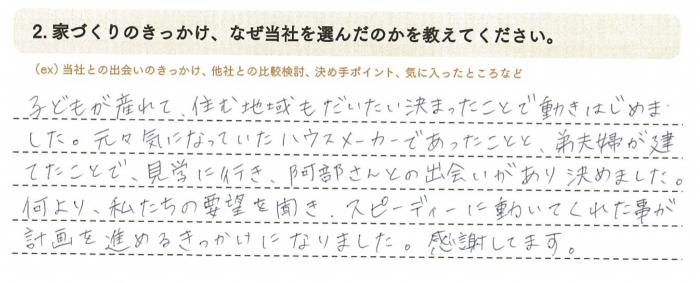 2. 家づくりのきっかけ、なぜ当社を選んだのかを教えてください。
（ex）当社との出会いのきっかけ、他社との比較検討、決め手ポイント、気に入ったところなど
子どもが産れて、住む地域もだいたい決まったことで動きはじめま
した。元々気になっていたハウスメーカーであったことと、弟夫婦が建
てたことで、見学に行き、阿部さんとの出会いがあり決めました。
何より、私たちの要望を聞き、スピーディーに動いてくれた事が
計画を進めるきっかけになりました。感謝してます。